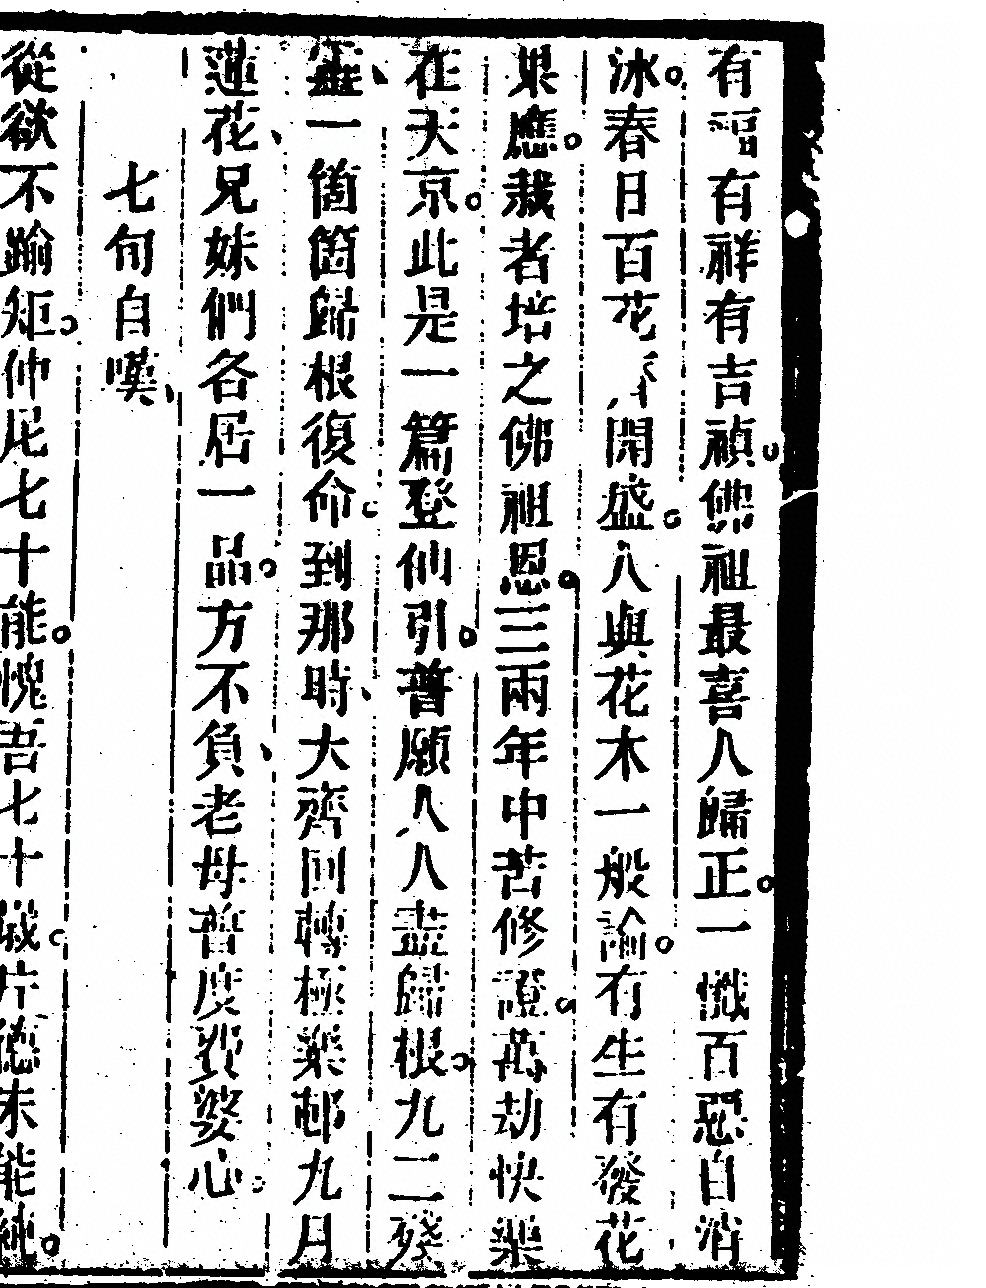 有福有祥有吉禎佛祖最喜人歸正一懺百惡自消
冰春日百花齊開盛人與花木一般論有生有發花
果應栽者培之佛祖恩三兩年中苦修證萬劫快樂
在天京此是一篇登仙引普願人人盡歸根九二殘
靈一箇箇歸根復命到那時大齊回轉極樂邨九月
蓮花兄妹們各居一品方不負老母普度費婆心
七旬自嘆
從欲不踰矩仲尼七十能愧吾七十歲片德未能純